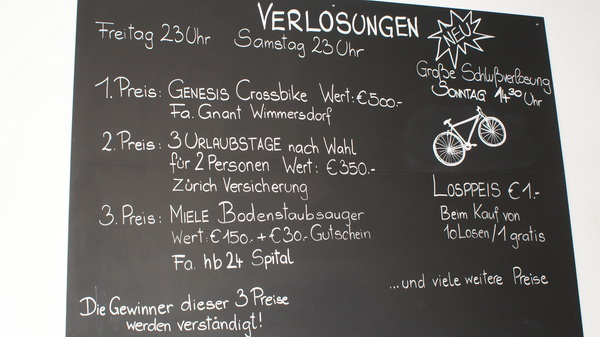 VERLOSUNGEN
Freitag 23 Uhr Samstag 23 Uhr
NEU
Große Schlußverlosung
SONNTAG 14 30 Uhr
1. Preis: GENESIS Crossbike Wert: €500.-
Fa. Gnant Wimmersdorf
2. Preis: 3 URLAUBSTAGE nach Wahl
für 2 Personen Wert: €350.-
Zürich Versicherung
3. Preis: MIELE Bodenstaubsauger
Wert: €150.- + €30.- Gutschein
Fa. hb24 Spital
LOSPPEIS €1.-
Beim Kauf von
10 Losen/1 gratis
...und viele weitere Preise
Die Gewinner dieser 3 Preise
werden verständigt!